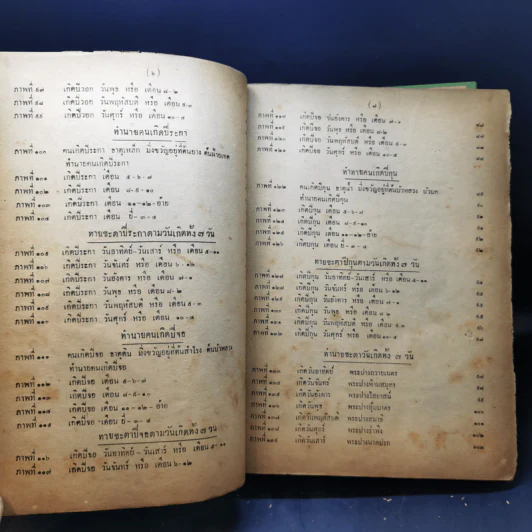 (๖)
ภาพที่ ๙๗ เกิดปีวอก วันพุธ หรือ เดือน ๘-๒
ภาพที่ ๙๘ เกิดปีวอก วันพฤหัสบดี หรือ เดือน ๙-๓
ภาพที่ ๙๙ เกิดปีวอก วันศุกร์ หรือ เดือน ๑๐-๔
ทำนายคนเกิดปีระกา
ภาพที่ ๑๐๐ คนเกิดปีระกา ธาตุเหล็ก มิ่งขวัญอยู่ที่ต้นยาง ต้นฝ้ายเทศ
ทำนายคนเกิดปีระกา
ภาพที่ ๑๐๑ เกิดปีระกา เดือน ๕-๖-๗
ภาพที่ ๑๐๒ เกิดปีระกา เดือน ๘-๙-๑๐
ภาพที่ ๑๐๓ เกิดปีระกา เดือน ๑๑-๑๒-อ้าย
ภาพที่ ๑๐๔ เกิดปีระกา เดือน ยี่-๓-๔
ทายชะตาปีระกาตามวันเกิดทั้ง ๗ วัน
ภาพที่ ๑๐๕ เกิดปีระกา วันอาทิตย์-วันเสาร์ หรือ เดือน ๕-๑๑
ภาพที่ ๑๐๖ เกิดปีระกา วันจันทร์ หรือ เดือน ๖-๑๒
ภาพที่ ๑๐๗ เกิดปีระกา วันอังคาร หรือ เดือน ๗-๑
ภาพที่ ๑๐๘ เกิดปีระกา วันพุธ หรือ เดือน ๘-๒
ภาพที่ ๑๐๙ เกิดปีระกา วันพฤหัสบดี หรือ เดือน ๙-๓
ภาพที่ ๑๑๐ เกิดปีระกา วันศุกร์ หรือ เดือน ๑๐-๔
ทำนายคนเกิดปีจอ
ภาพที่ ๑๑๑ คนเกิดปีจอ ธาตุดิน มิ่งขวัญอยู่ที่ต้นสำโรง ต้นบัวหลวง
ทำนายคนเกิดปีจอ
ภาพที่ ๑๑๒ เกิดปีจอ เดือน ๕-๖-๗
ภาพที่ ๑๑๓ เกิดปีจอ เดือน ๘-๙-๑๐
ภาพที่ ๑๑๔ เกิดปีจอ เดือน ๑๑-๑๒-อ้าย
ภาพที่ ๑๑๕ เกิดปีจอ เดือน ยี่-๓-๔
ทายชะตาปีจอตามวันเกิดทั้ง ๗ วัน
ภาพที่ ๑๑๖ เกิดปีจอ วันอาทิตย์-วันเสาร์ หรือ เดือน ๕-๑๑
ภาพที่ ๑๑๗ เกิดปีจอ วันจันทร์ หรือ เดือน ๖-๑๒
(๗)
เกิดปีจอ วันอังคาร หรือ เดือน ๗-๑
เกิดปีจอ วันพุธ หรือ เดือน ๘-๒
เกิดปีจอ วันพฤหัสบดี หรือ เดือน ๙-๓
เกิดปีจอ วันศุกร์ หรือ เดือน ๑๐-๔
ทำนายคนเกิดปีกุน
ภาพที่ ๑๒๒ คนเกิดปีกุน ธาตุน้ำ มิ่งขวัญอยู่ที่ต้นบัวหลวง
ทำนายคนเกิดปีกุน
ภาพที่ ๑๒๓ เกิดปีกุน เดือน ๕-๖-๗
ภาพที่ ๑๒๔ เกิดปีกุน เดือน ๘-๙-๑๐
ภาพที่ ๑๒๕ เกิดปีกุน เดือน ๑๑-๑๒-อ้าย
ภาพที่ ๑๒๖ เกิดปีกุน เดือน ยี่-๓-๔
ทายชะตาปีกุนตามวันเกิดทั้ง ๗ วัน
ภาพที่ ๑๒๗ เกิดปีกุน วันอาทิตย์-วันเสาร์ หรือ เดือน ๕-๑๑
ภาพที่ ๑๒๘ เกิดปีกุน วันจันทร์ หรือ เดือน ๖-๑๒
ภาพที่ ๑๒๙ เกิดปีกุน วันอังคาร หรือ เดือน ๗-๑
ภาพที่ ๑๓๐ เกิดปีกุน วันพุธ หรือ เดือน ๘-๒
ภาพที่ ๑๓๑ เกิดปีกุน วันพฤหัสบดี หรือ เดือน ๙-๓
ภาพที่ ๑๓๒ เกิดปีกุน วันศุกร์ หรือ เดือน ๑๐-๔
ทำนายชะตาวันเกิดทั้ง ๗ วัน
เกิดวันอาทิตย์ พระปางถวายเนตร
เกิดวันจันทร์ พระปางห้ามสมุทร
เกิดวันอังคาร พระปางไสยาสน์
เกิดวันพุธ พระปางอุ้มบาตร
เกิดวันพฤหัสบดี พระปางสมาธิ
เกิดวันศุกร์ พระปางรำพึง
เกิดวันเสาร์ พระปางนาคปรก